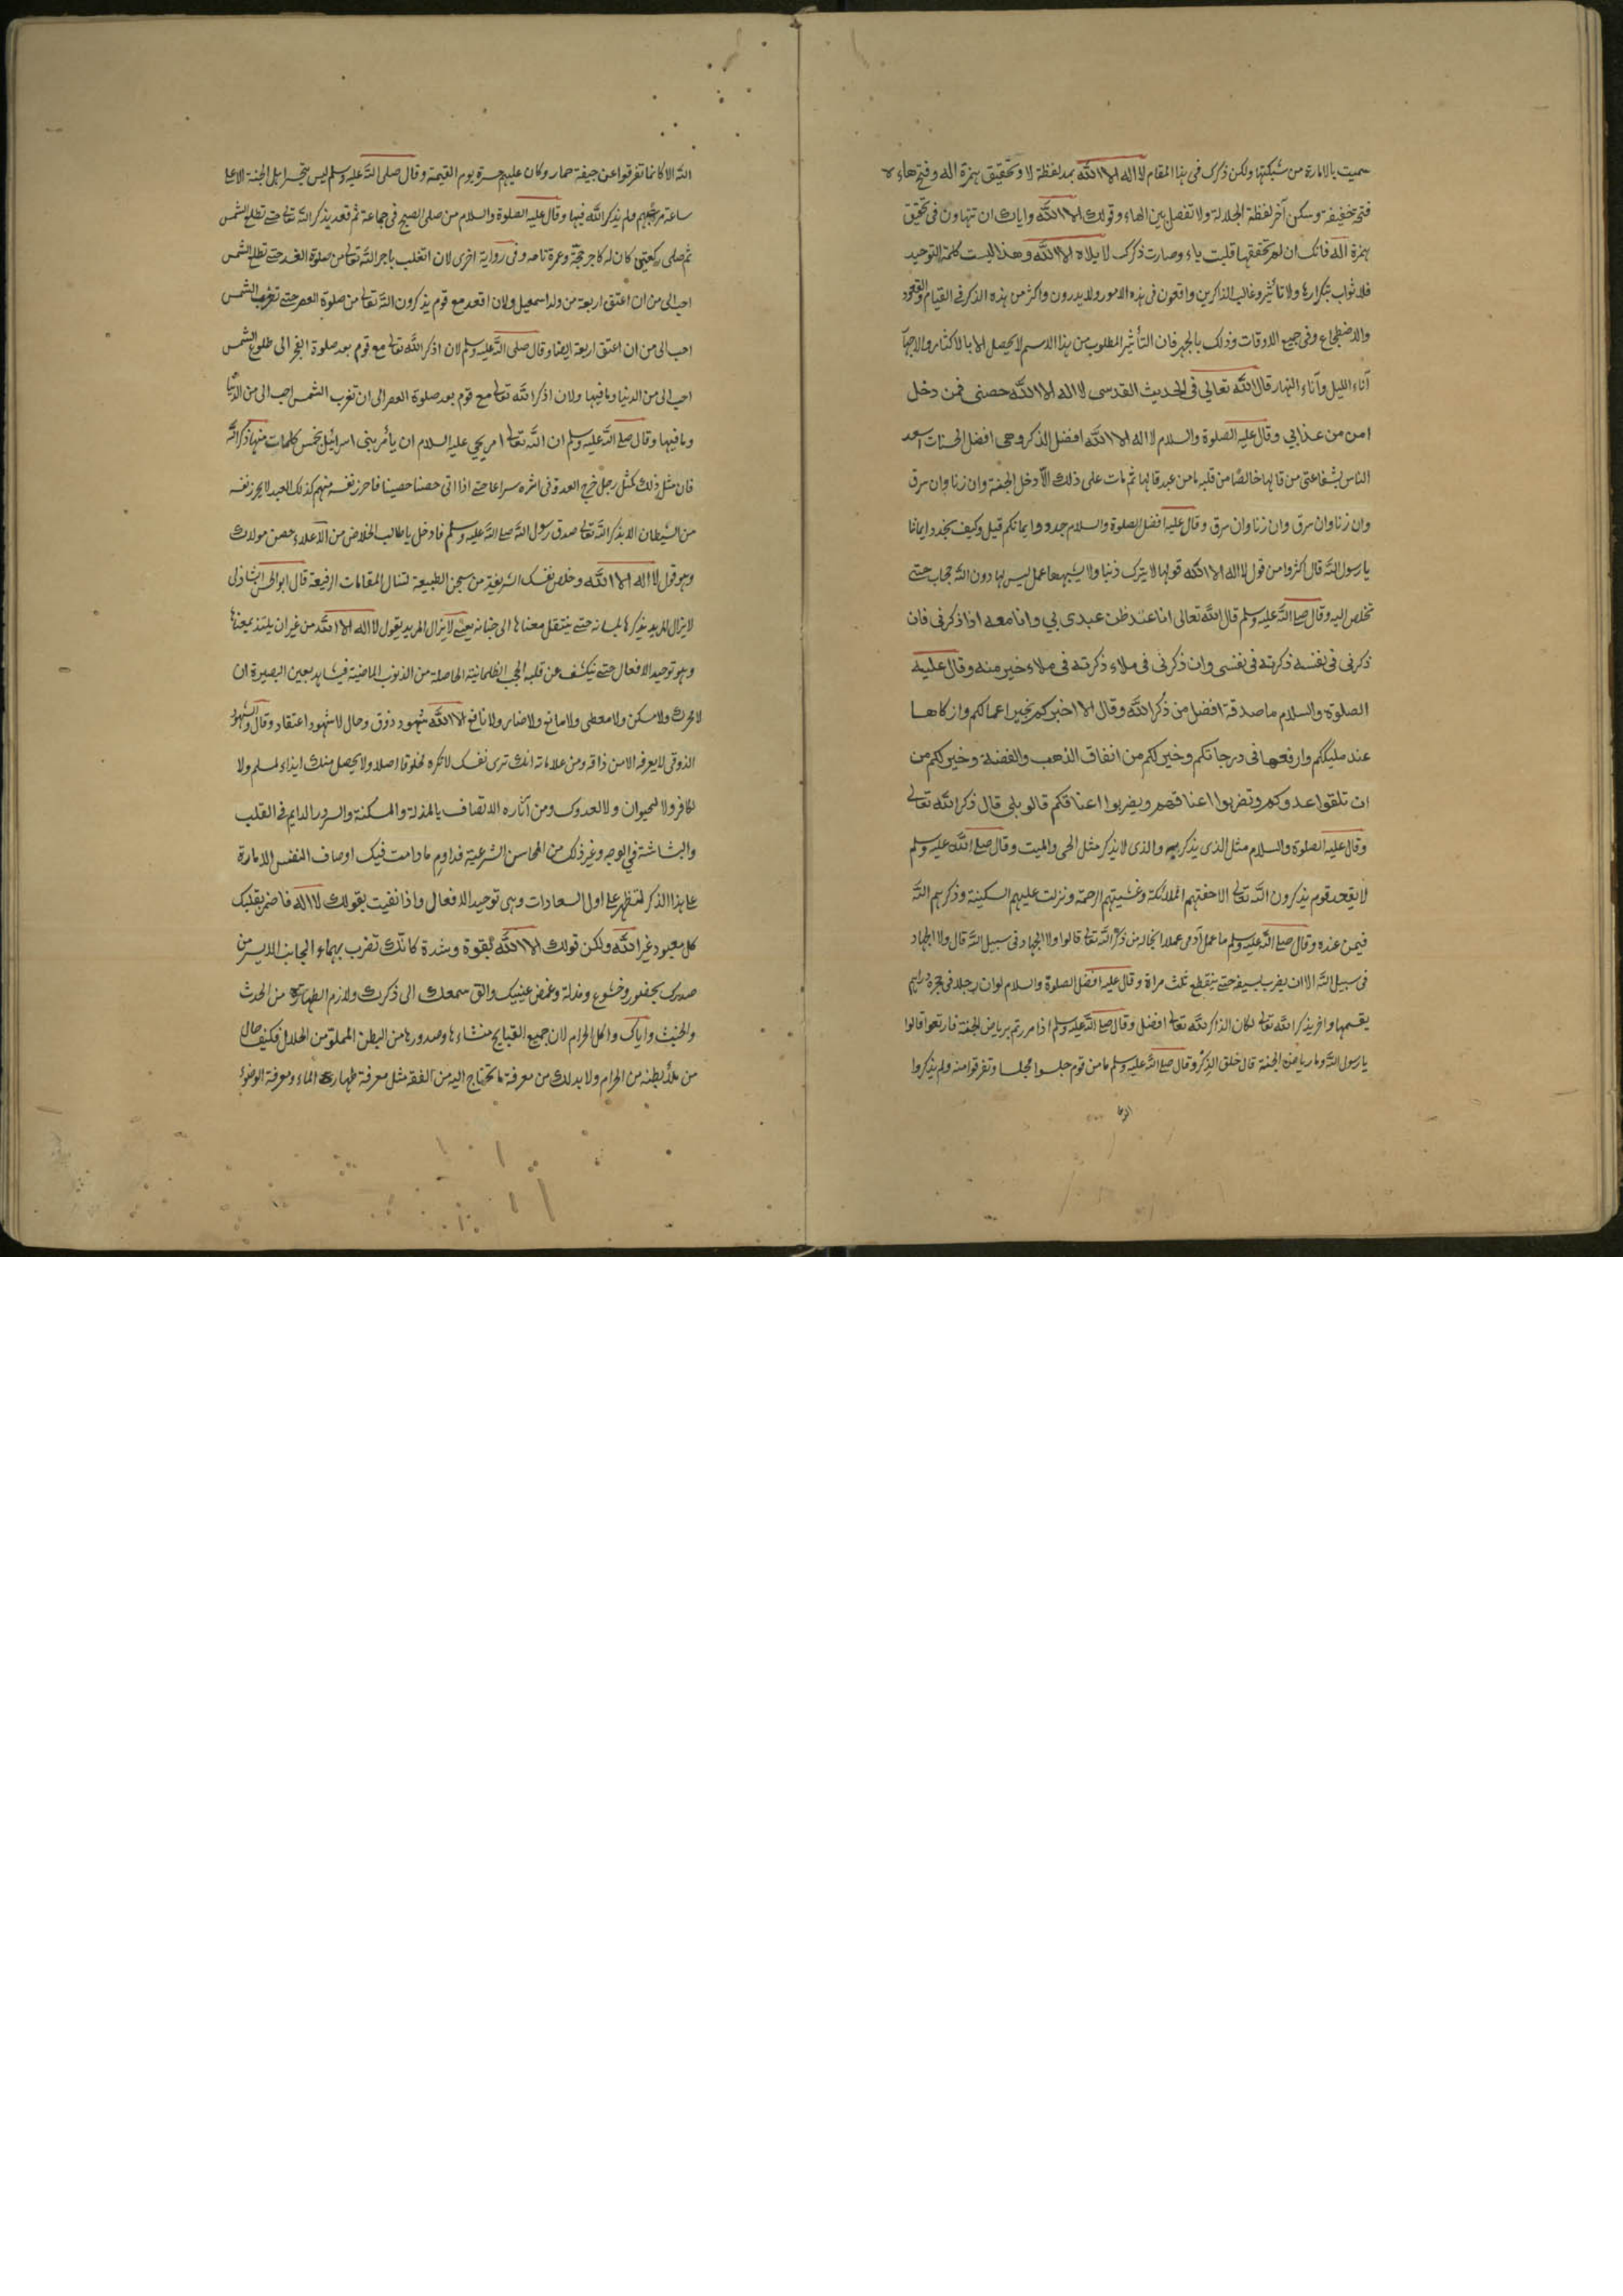 سميت بالامارة من شبكتها ولكن ذكرك فى هذا المقام لا اله الا الله بمد لفظة لا وتحقيق همزة اله وفتح هاءه
فتحة خفيفة وسكن آخر لفظة الجلالة ولا تفصل بين الهاء وقولك الا الله واياك ان تتهاون فى تحقيق
همزة اله فانك ان لم تحققها قلبت ياء وصارت ذكرك لا يلاه الا الله وهذا ليست كلمة التوحيد
فلا ثواب بتكرارها ولا تأثير وغالب الذاكرين واقعون فى هذه الامور ولا يدرون واكثر من هذه الذكر فى القيام والقعود
والاضطجاع وفى جميع الاوقات وذلك بالجهر فان التأثير المطلوب من هذا الاسم لا يحصل الا بالاكثار والاجهار
آناء الليل وآناء النهار قال الله تعالي فى الحديث القدسى لا اله الا الله حصنى فمن دخل
امن من عذابي وقال عليه الصلوة والسلام لا اله الا الله افضل الذكر وهى افضل الحسنات اسعد
الناس بشفاعتى من قالها خالصًا من قلبه ما من عبد قالها ثم مات على ذلك الّا دخل الجنة وان زنا وان سرق
وان زنا وان سرق وان زنا وان سرق وقال عليه افضل الصلوة والسلام جددوا ايمانكم قيل وكيف نجدد ايماننا
يا رسول الله قال اكثروا من قول لا اله الا الله قولها لا يترك ذنبا ولا يشبهها عمل ليس لها دون الله حجاب حتى
تخلص اليه وقال صلى الله عليه وسلم قال الله تعالى انا عند ظن عبدى بي وانا معه اذا ذكرنى فان
ذكرنى فى نفسه ذكرته فى نفسى وان ذكرنى فى ملاء ذكرته فى ملاء خير منه وقال عليه
الصلوة والسلام ما صدقة افضل من ذكر الله وقال الا اخبركم بخير اعمالكم وازكاها
عند مليككم وارفعها فى درجاتكم وخير لكم من انفاق الذهب والفضة وخير لكم من
ان تلقوا عدوكم وتضربوا اعناقهم ويضربوا اعناقكم قالو بلى قال ذكر الله تعالى
وقال عليه الصلوة والسلام مثل الذى يذكر ربه والذى لا يذكر مثل الحى والميت وقال صلى الله عليه وسلم
لا يقعد قوم يذكرون الله تعالى الا حفتهم الملائكة وغشيتهم الرحمة ونزلت عليهم السكينة وذكرهم الله
فيمن عنده وقال صلى الله عليه وسلم ما عمل آدمى عملا انجا له من ذكر الله تعالى قالوا ولا الجهاد فى سبيل الله قال ولا الجهاد
فى سبيل الله الا ان يضرب بسيفه حتى ينقطع ثلث مراة وقال عليه افضل الصلوة والسلام لو ان رجلا فى حجره دراهم
يقسمها واخر يذكر الله تعالى لكان الذاكر لله تعالى افضل وقال صلى الله عليه وسلم اذا مررتم برياض الجنة فارتعوا قالوا
يا رسول الله وما رياض الجنة قال حلق الذكر وقال صلى الله عليه وسلم ما من قوم جلسوا مجلسا وتفرقوا منه ولم يذكروا
الله الا كانما تفرقوا عن جيفة حمار وكان عليهم حسرة يوم القيمة وقال صلى الله عليه وسلم ليس يتحسر اهل الجنة الا على
ساعة مرت بهم ولم يذكر الله فيها وقال عليه الصلوة والسلام من صلى الصبح فى جماعة ثم قعد يذكر الله تعالى حتى تطلع الشمس
ثم صلى ركعتين كان له كاجر حجة وعمرة تامه وفى رواية اخرى لان اتغلب باجر الله تعالى من صلوة الغد حتى تطلع الشمس
احب الى من ان اعتق اربعة من ولد اسمعيل ولان اقعد مع قوم يذكرون الله تعالى من صلوة العصر حتى تغرب الشمس
احب الى من ان اعتق اربعة ايضا وقال صلى الله عليه وسلم لان اذكر الله تعالى مع قوم بعد صلوة الفجر الى طلوع الشمس
احب الى من الدنيا وما فيها ولان اذكر الله تعالى مع قوم بعد صلوة العصر الى ان تغرب الشمس احب الى من الدنيا
وما فيها وقال صلى الله عليه وسلم ان الله تعالى امر يحيى عليه السلام ان يأمر بنى اسرائيل بخمس كلمات منها ذكر الله
فان مثل ذلك كمثل رجل خرج العدو فى اثره سراعا حتى اذا اتى حصنا حصينا فاحرز نفسه منهم كذلك العبد لا يحرز نفسه
من الشيطان الا بذكر الله تعالى صدق رسول الله صلى الله عليه وسلم فادخل يا طالب الخلاص من الاعلاء حصن مولاك
وهو قول لا اله الا الله وخلص نفسك الشريفة من سجن الطبيعة لتنال المقامات الرفيعة قال ابو الحسن الشاذلى
لا يزال المريد يذكرها بلسانه حتى ينتقل معناها الى جنانه يعنى لا يزال المريد يقول لا اله الا الله من غير ان يلتذ بمعناها
وهو توحيد الافعال حتى ينكشف عن قلبه الحجب الظلمانية الحاصلة من الذنوب الماضية فيشاهد بعين البصيرة ان
لا محرك ولا مسكن ولا معطى ولا مانع ولا ضار ولا نافع الا الله شهود ذوق وحال لا شهود اعتقاد وقال والشهود
الذوقى لا يعرفه الا من ذاقه ومن علاماته انك ترى نفسك لا تكره مخلوقا اصلا ولا يحصل منك ايذاء لمسلم ولا
لكافر ولا لحيوان ولا لعدوك ومن آثاره الاتصاف بالمذلة والمسكنة والسرور الدايم فى القلب
والبشاشة فى الوجه وغير ذلك من المحاسن الشرعية فداوم ما دامت فيك اوصاف النفس الامارة
على هذا الذكر لتظهر على اول السعادات وهى توحيد الافعال واذا نفيت بقولك لا اله فاضمر بقلبك
كل معبود غير الله ولكن قولك الا الله بقوة وشدة كانّك تضرب بهاء الجانب الايسر من
صدرك بحضور وخشوع ومذلة وغمض عينيك والق سمعك الى ذكرك ولازم الطهارة من الحدث
والخبث واياك واكل الحرام لان جميع القبايح منشاءها وصدورها من البطن المملو من الحلال فكيف حال
من ملأ بطنه من الحرام ولا بد لك من معرفة ما تحتاج اليه من الفقه مثل معرفة طهارة الماء ومعرفة الوضوء